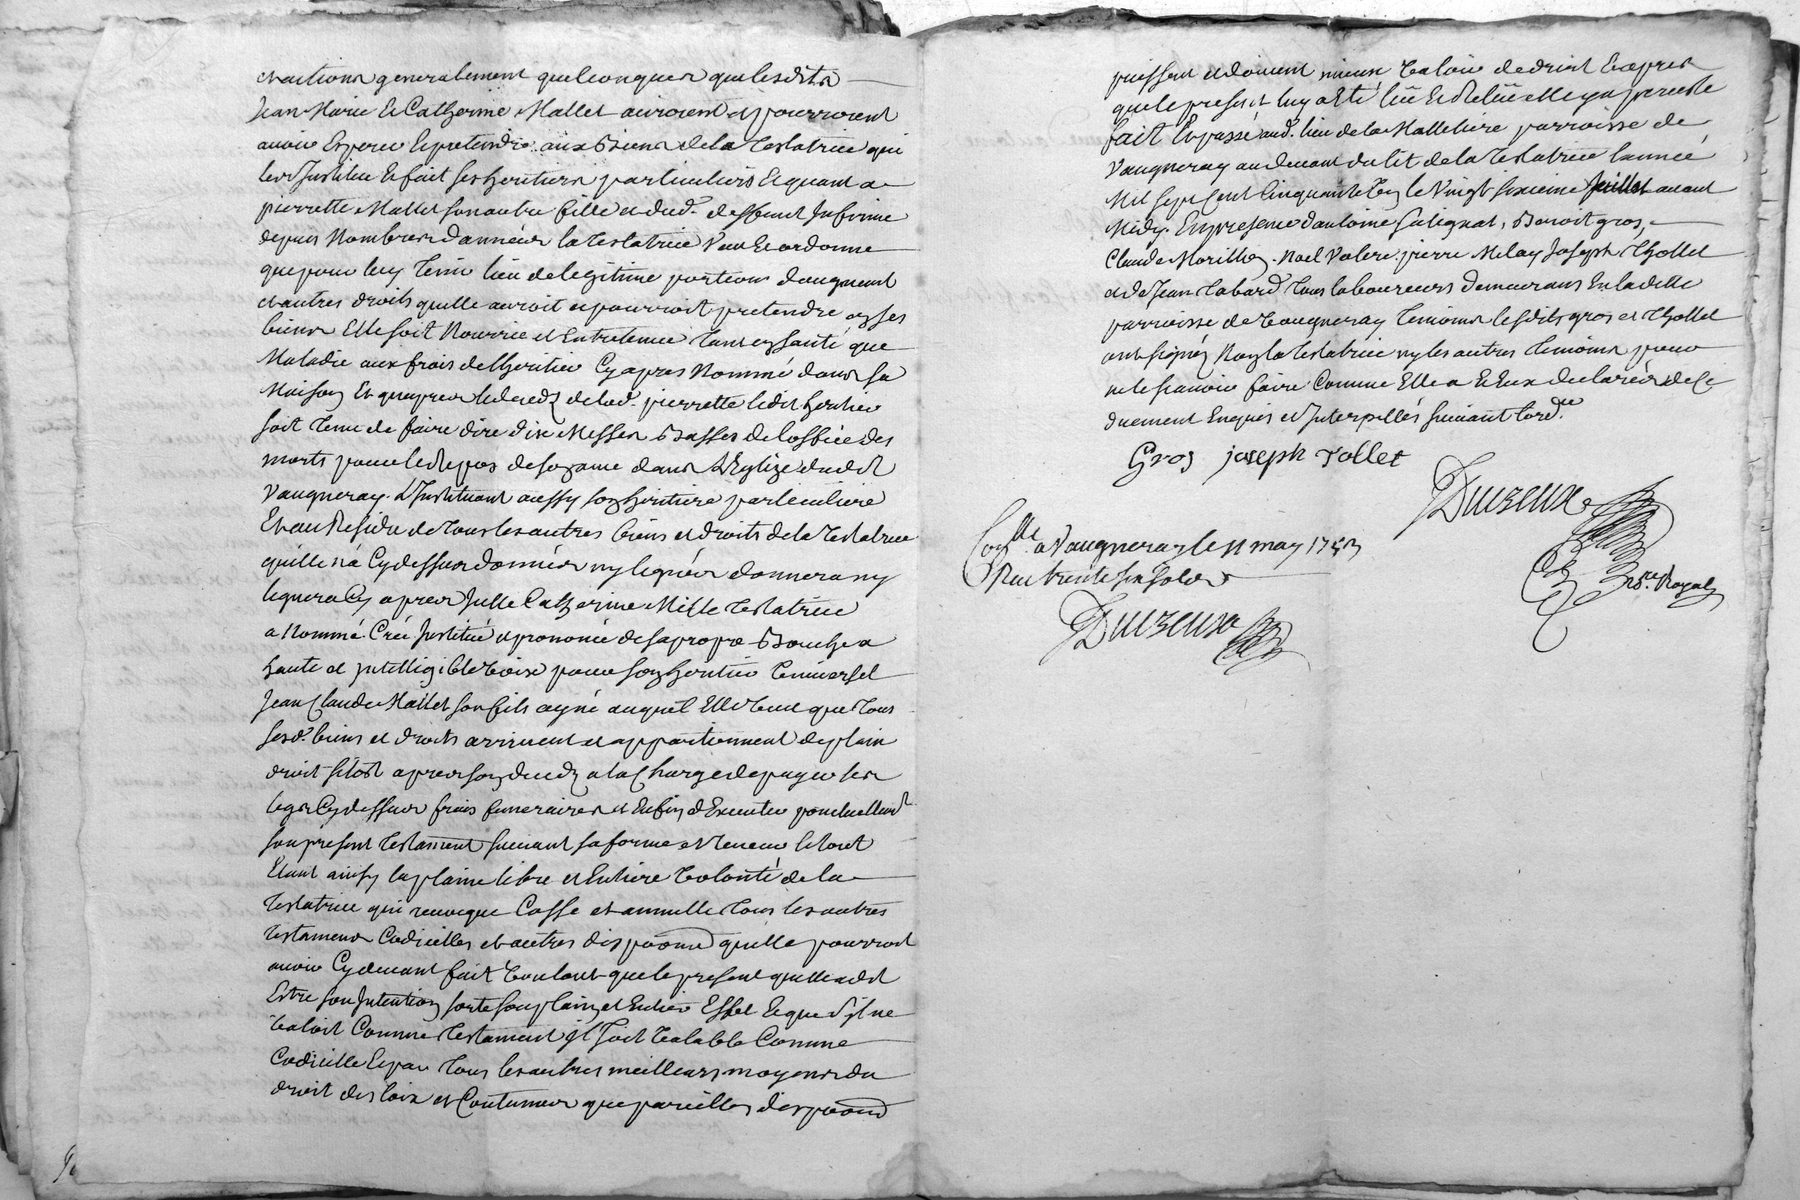 et actions generalement quelconques que lesdits
Jean Marie et Catherine Mallet auroient et pourroient
avoir Esperer et pretendre aux Biens de la testatrice qui
les Institue et fait ses heritiers particuliers Et quant a
pierrette Mallet son autre fille et dud. deffunt Infirme
depuis Nombres d'années la testatrice Veut Et ordonne
que pour luy tenir lieu de legitime portion d'augment
et autres droits qu'elle auroit et pourroit pretendre ez ses
biens Elle soit Nourrie et Entretenue tant en santé que
Maladie aux frais de l'heritier Cy apres Nommé dans sa
Maison Et qu'apres le decedz de lad. pierrette ledit heritier
soit tenu de faire dire dix Messes Basses de l'office des
morts pour le Repos de son ame dans l'Eglize dudit
Vaugneray. L'Instituant aussy son heritiere particuliere
Et au Residu de tous les autres biens et droits de la testatrice
qu'elle n'a Cy dessus donnés ny legués donnera ny
leguera Cy apres Jcelle Catherine Mille testatrice
a Nommé Créé Justitué et prononcé de sa propre Bouche a
haute et Jntelligible Voix pour son heritier Universel
Jean Claude Mallet son fils ayné auquel Elle Veut que tous
sesd. biens et droits arrivent et appartiennent de plain
droit sitost apres son decedz a la Charge de payer les
legs Cy dessus frais funeraires et Enfin d'Executer ponctuellemt
son present testament suivant sa forme et teneur le tout
Etant ainsy la plaine libre et Entiere Volonté de la
testatrice qui revoque Casse et annulle tous les autres
testamens Codicilles et autres dispoons qu'elle pourroit
avoir Cy devant fait Voulant que le present qu'elle a dit
Estre son Jntention sorte son plain et Entier Effet Et que s'il ne
Valoit Comme testament il soit Valable Comme
Codicille Et par tous les autres meilleurs moyens du
droit des loix et Coutumes que pareilles dispoons
puissent et doivent mieux Valoir de droit Et apres
que le present luy a Eté lû et Relû elle y a persisté
fait Et passé aud. lieu de la Malletiere parroisse de
Vaugneray au devant du lit de la testatrice l'année
Mil sept Cent Cinquante trois le Vingt sixieme Juillet avant
Midy. En presence d'antoine Salignat, Benoit gros,
Claude Morillon, Noel Valere, pierre Melay Joseph thollet
et de Jean tabard tous laboureurs demeurans En ladite
parroisse de Vaugneray temoins lesdits gros et thollet
ont signés Non la testatrice ny les autres temoins pour
ne le scavoir faire Comme Elle a Et Eux declarés de Ce
duement Enquis et Interpellés suivant l'ordce
Gros joseph Tollet
a Vaugneray le 11 may 1753
Reçu trente six sols
Nore. Royal